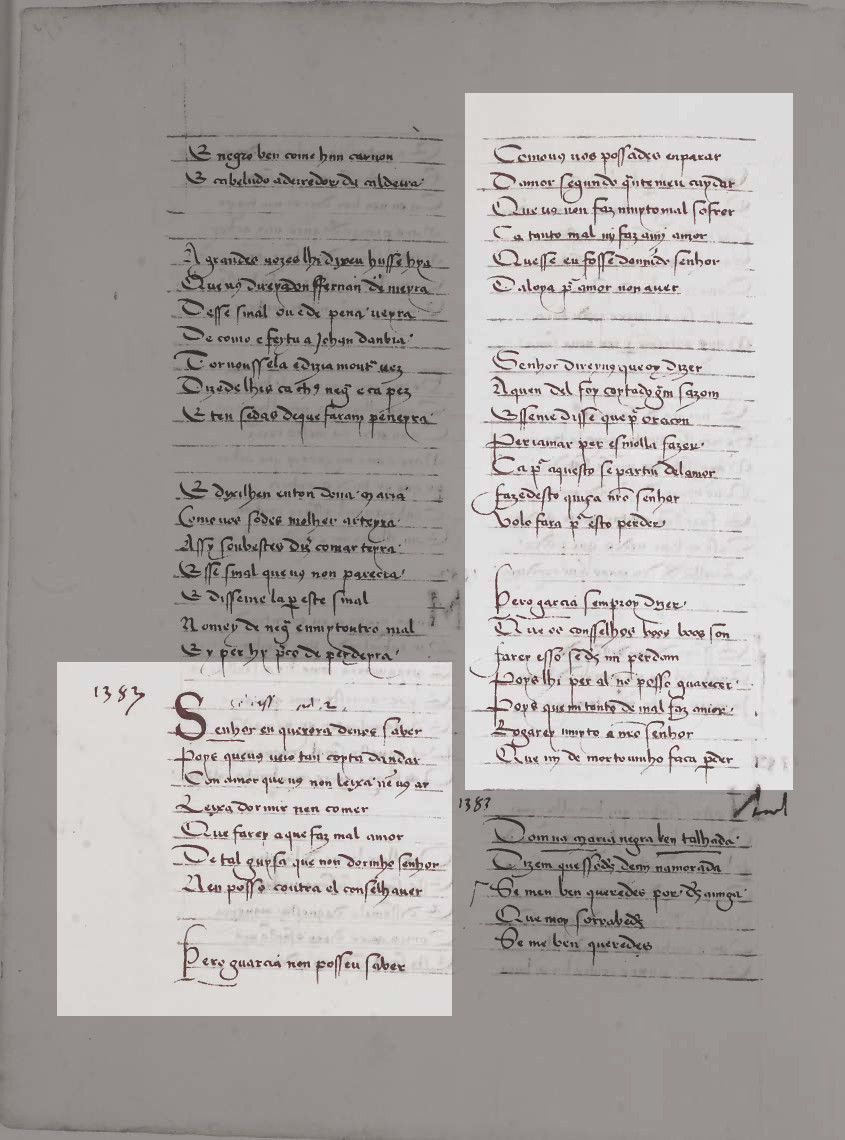 E negro ben come hun carvon
E cabeludo aderedor da caldeira
A grandes vozes lhi dixeu husse hya
Que vos direya don ffernan de meyra
Desse sinal ou e de pena veyra
De como e feytu a Johan danbia
Tornoussela e dizia mout vez
Dizedelhis ca e neg e ca pez
E ten sedas de que faram peneyra
E dixilhen enton dona Maria
Como ues sodes molher arteyra
Assy soubestes comarteyra
Esse sinal que vos non parecia
E disseme la per este sinal
Nomey de neg e muytoutro mal
Ey per hy pco de perdeyra
1383
Senhor eu querora de uos saber
Poys que uus ueio tan coyta dandar
Con amor que uus non leixa nē us ar
Leixa dormir nen comer
Que farey a que faz mal amor
De tal guysa que non dormho senhor
Nen posso contra el conselh auer
Pero guarcia non posseu saber
Como uus uos possades enparar
Damor segundo quntemeu cuydar
Que us non faz muyto mal sofrer
Ca tanto mal mi faz ami amor
Quesse eu fosse doundo senhor
Daloya pr amor non auer
Senhor direyuus que oy dizer
A quen del foy coytado grm sazom
Esseme disse que pr oraçon
Per iaiūar per esmolla fazer
Ca pr aquesto se partiu del amor
Fazedesto quiça nro senhor
Uolo fara pr esto perder
Pero garcia sempr oy dizer
Que os consselhos boos boos son
Farey esso se ds mi perdom
Poys lhi per al no posso guarecer
Poys que mi tanto de mal faz amor
Rogarey muyto a nro senhor
Que my de morto unho faca pder
1383
Domna maria negra ben talhada
Dizem que ssodes demi namorada
Se men ben queredes por ds amiga
Que moy sorrabedes
Se me ben queredes